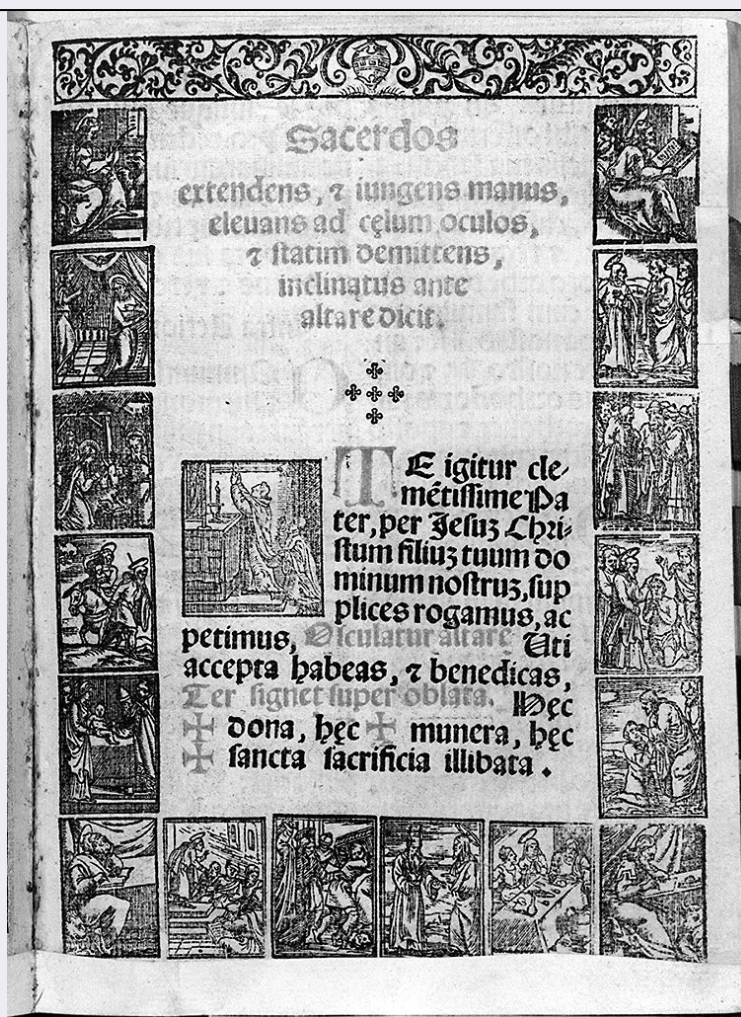 Sacerdos
extendens, ⁊ iungens manus,
eleuans ad cęlum oculos,
⁊ statim demittens,
inclinatus ante
altare dicit.
TE igitur cle-
mẽtissime Pa
ter, per Jesuz Chri-
stum filiuz tuum do
minum nostruz, sup
plices rogamus, ac
petimus, Osculatur altare Uti
accepta habeas, ⁊ benedicas,
Ter signet super oblata. Hęc
✠ dona, hęc ✠ munera, hęc
✠ sancta sacrificia illibata.